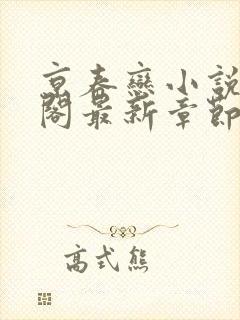 京春戀小說
閣最新章節
高式熊